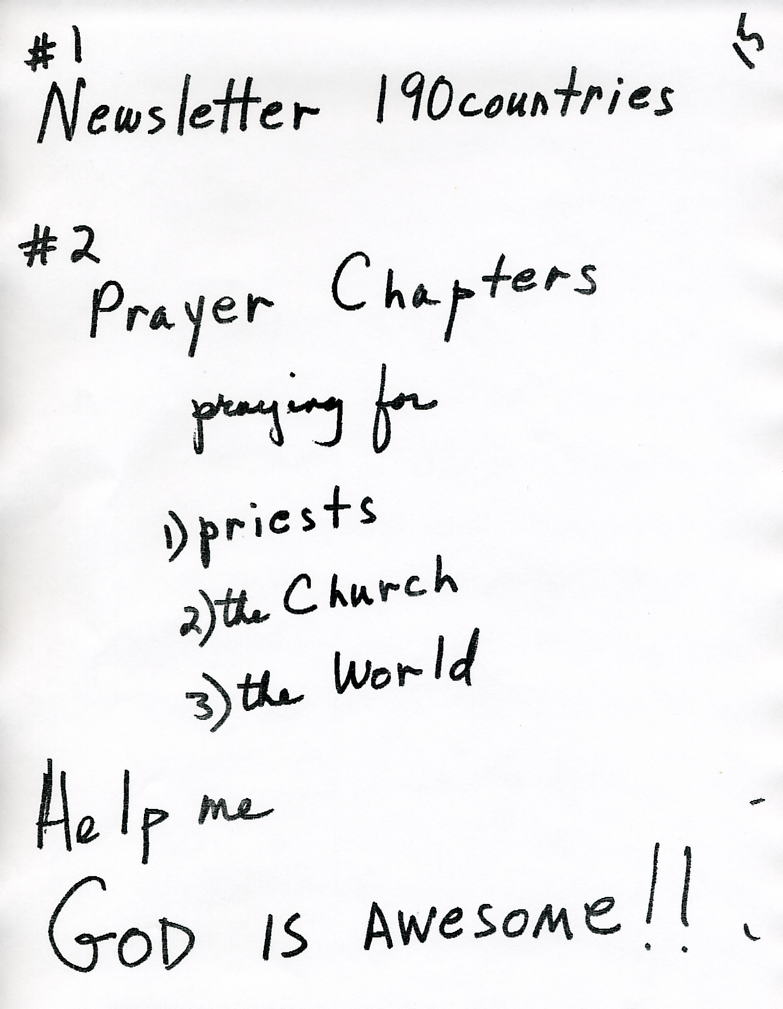 #1
Newsletter 190 countries
#2
Prayer Chapters
praying for
1) priests
2) the Church
3) the World
Help me
GOD IS AWESOME!!